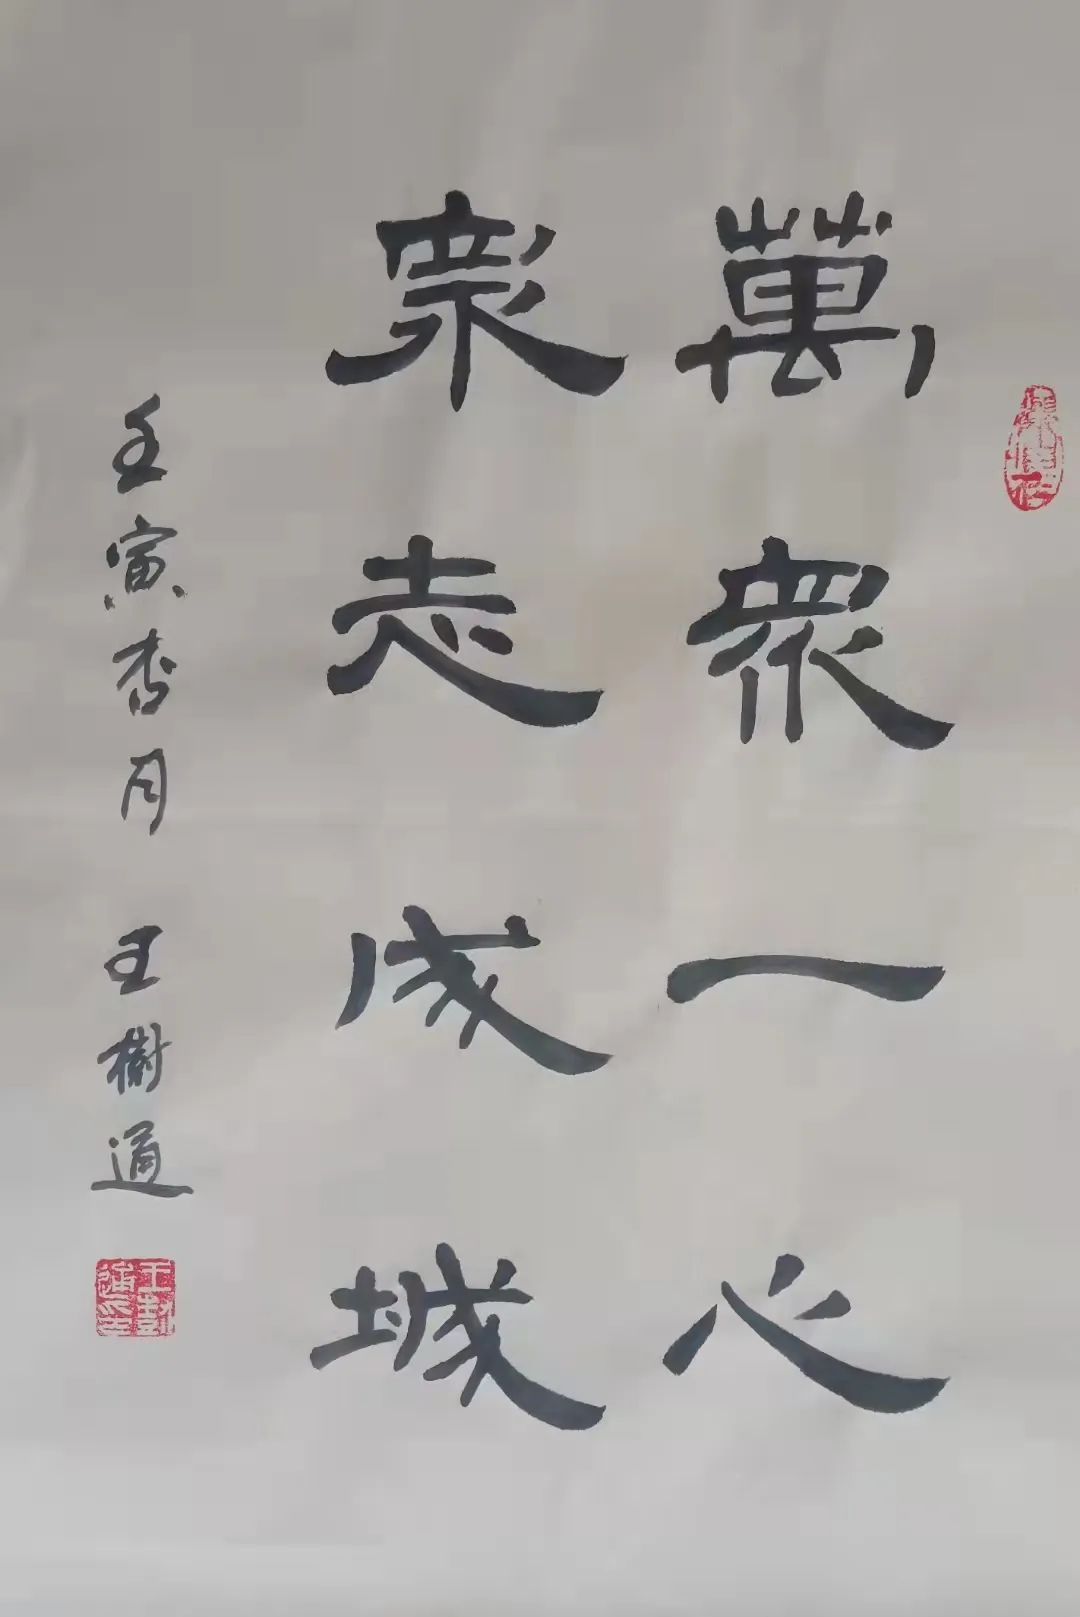 萬眾一心
眾志成城
壬寅杏月 王樹通
王樹通印